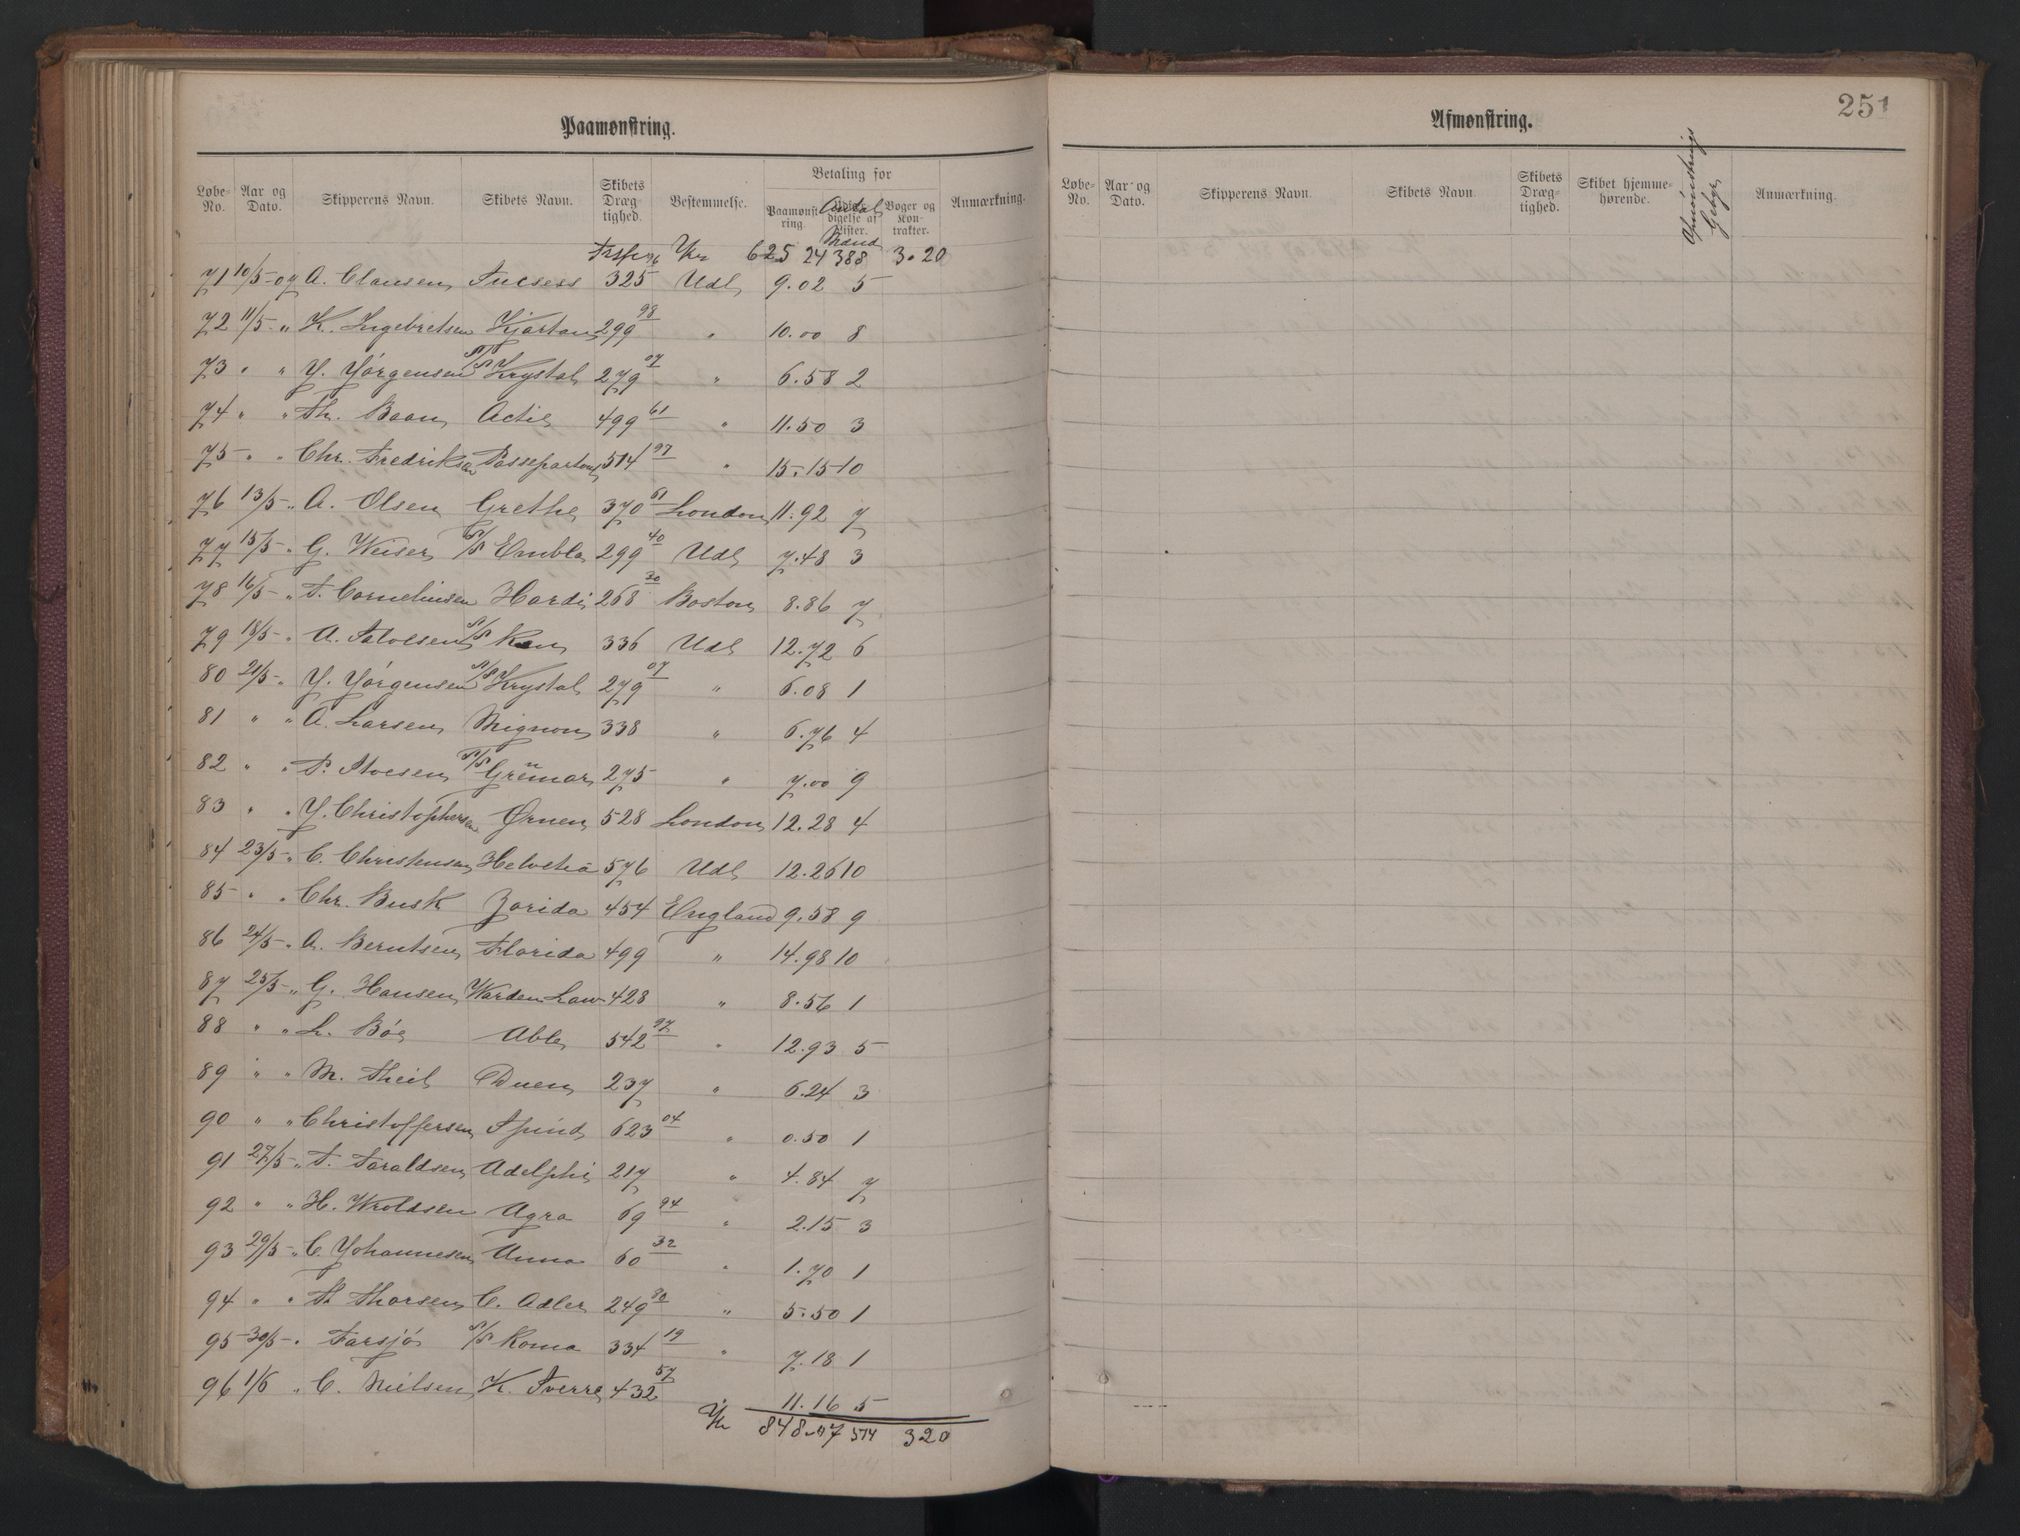 251
Paamønstring.
Løbe-No. Aar og Dato. Skipperens Navn. Skibets Navn. Skibets Dræg-tighed. Bestemmelse. Betaling for Paamønst-ring. Antal Mand Bøger og Kon-trakter. Anmærkning.
Kr 625 24 388 3.20
71 10/5-07 A. Clausen Sucsess 325 Udl 9.02 5
72 11/5 " K. Ingebretsen Kjartan 299 98 " 10.00 8
73 " " Y. Yørgensen S/S Krystal 279 07 " 6.58 2
74 " " Th. Baan Actie 499 61 " 11.50 3
75 " " Chr. Fredriksen Passepartout 514 97 " 15.15 10
76 13/5 " A. Olsen Grethe 370 61 London 11.92 7
77 15/5 " G. Weiser S/S Embla 299 40 Udl 7.48 3
78 16/5 " T. Corneliusen Hardi 268 30 Boston 8.86 7
79 18/5 " A. Salvesen S/S Ken 336 Udl 12.72 6
80 21/5 " Y. Yørgensen S/S Krystal 279 07 " 6.08 1
81 " " A. Larsen Mignon 338 " 6.76 4
82 " " S/S 275 " 7.00 9
83 " " Y. Christophersen Ørnen 528 London 12.28 4
84 23/5 " C. Christensen Helvetia 576 Udl 12.26 10
85 " " Chr. Busk Zarida 454 England 9.58 9
86 24/5 " A. Berntsen Florida 499 " 14.98 10
87 25/5 " G. Hansen Warden Law 428 " 8.56 1
88 " " L. Bøe Able 542 97 " 12.93 5
89 " " M. Theil Duen 237 " 6.24 3
90 " " Christoffersen Spind 623 04 " 0.50 1
91 27/5 " T. Taraldsen Adelphi 217 " 4.84 7
92 " " H. Wroldsen Agra 69 94 " 2.15 3
93 29/5 " C. Yohannesen Anna 60 32 " 1.70 1
94 " " St Thorsen C. Adler 249 80 " 5.50 1
95 30/5 " Farsjø S/S Roma 334 19 " 7.18 1
96 1/6 " C. Nielsen K. Sverre 432 57 11.16 5
Kr 848.47 574 320
Afmønstring.
Løbe-No. Aar og Dato. Skipperens Navn. Skibets Navn. Skibets Dræg-tighed. Skibet hjemme-hørende. Afmønstrings Gebyr Anmærkning.